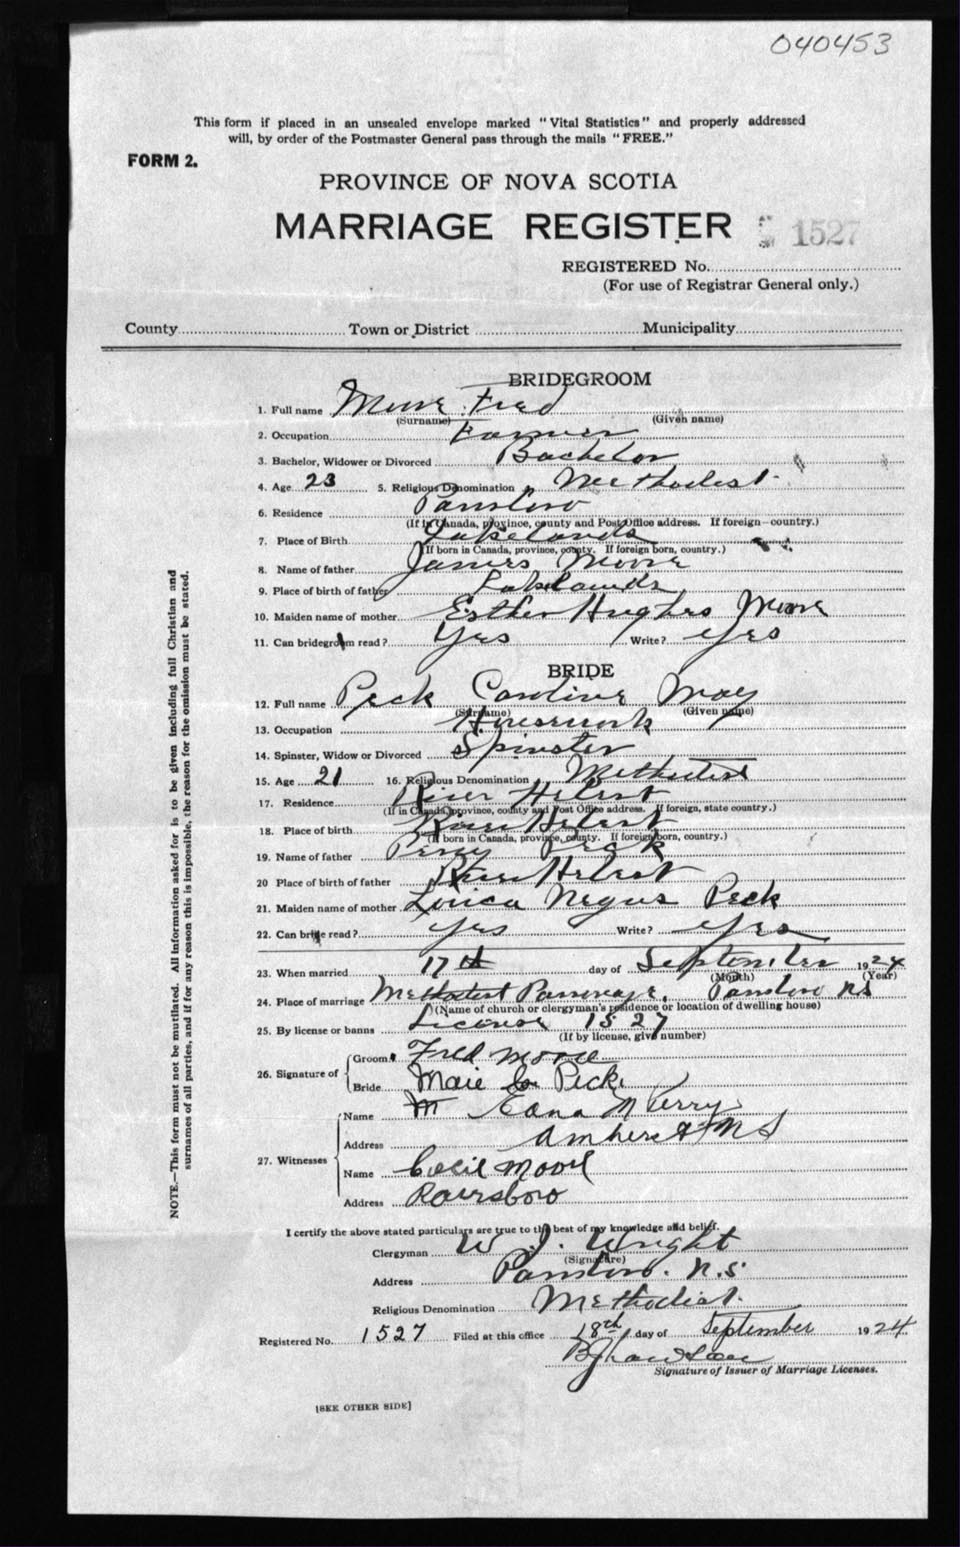 040453
This form if placed in an unsealed envelope marked "Vital Statistics" and properly addressed
will, by order of the Postmaster General pass through the mails "FREE."
FORM 2.
PROVINCE OF NOVA SCOTIA
MARRIAGE REGISTER 1527
REGISTERED No.
(For use of Registrar General only.)
County Town or District Municipality
BRIDEGROOM
1. Full name Moore Fred
(Surname) (Given name)
2. Occupation Farmer
3. Bachelor, Widower or Divorced Bachelor
4. Age 23 5. Religious Denomination Methodist
6. Residence Parrsboro
(If in Canada, province, county and Post Office address. If foreign—country.)
7. Place of Birth Lakelands
(If born in Canada, province, county. If foreign born, country.)
8. Name of father James Moore
9. Place of birth of father Lakelands
10. Maiden name of mother Esther Hughes Moore
11. Can bridegroom read? Yes Write? Yes
BRIDE
12. Full name Peck Caroline May
(Surname) (Given name)
13. Occupation Housework
14. Spinster, Widow or Divorced Spinster
15. Age 21 16. Religious Denomination Methodist
17. Residence River Hebert
(If in Canada, province, county and Post Office address. If foreign, state country.)
18. Place of birth River Hebert
(If born in Canada, province, county. If foreign born, country.)
19. Name of father Percy Peck
20 Place of birth of father River Hebert
21. Maiden name of mother Negus Peck
22. Can bride read? Yes Write? Yes
23. When married 17th day of September 1924
(Month) (Year)
24. Place of marriage Methodist Parsonage, Parrsboro NS
(Name of church or clergyman's residence or location of dwelling house)
25. By license or banns License 1527
(If by license, give number)
26. Signature of
Groom Fred Moore
Bride Maie Peck
27. Witnesses
Name Edna M Perry
Address Amherst N S
Name Cecil Moore
Address
I certify the above stated particulars are true to the best of my knowledge and belief.
Clergyman W. J. Wright
(Signature)
Address Parrsboro. N.S.
Religious Denomination Methodist.
Registered No. 1527 Filed at this office 18th day of September 1924
Signature of Issuer of Marriage Licenses.
[SEE OTHER SIDE]
NOTE.—This form must not be mutilated. All information asked for is to be given including full Christian and
surnames of all parties, and if for any reason this is impossible, the reason for the omission must be stated.